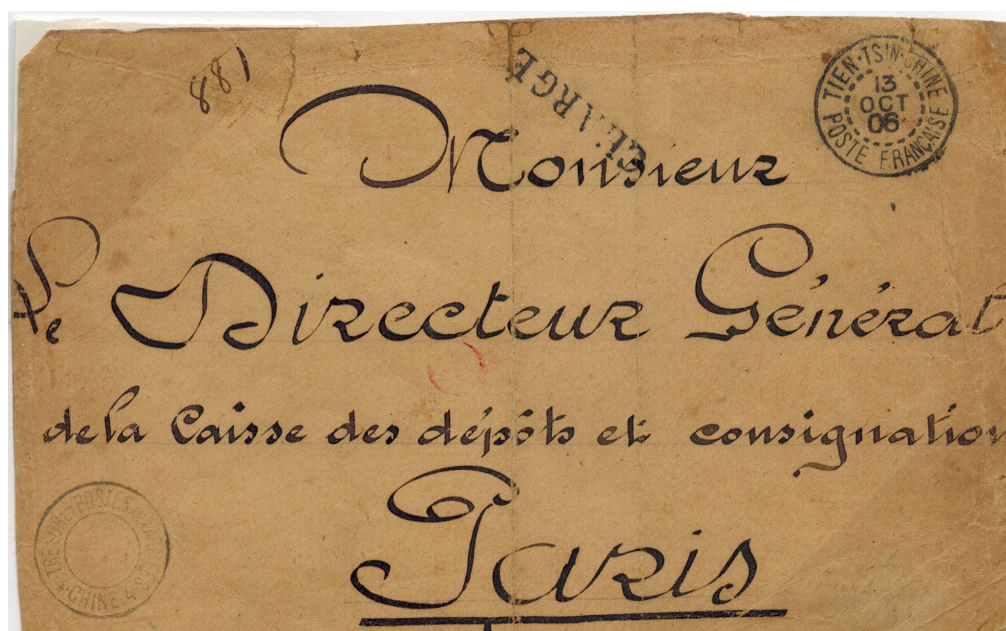 881
CHARGÉ
TIEN-TSIN-CHINE
13
OCT
06
POSTE FRANÇAISE
Monsieur
Le Directeur Général
de la Caisse des dépôts et consignation
TRESOR ET POSTES
CHINE 4
Paris